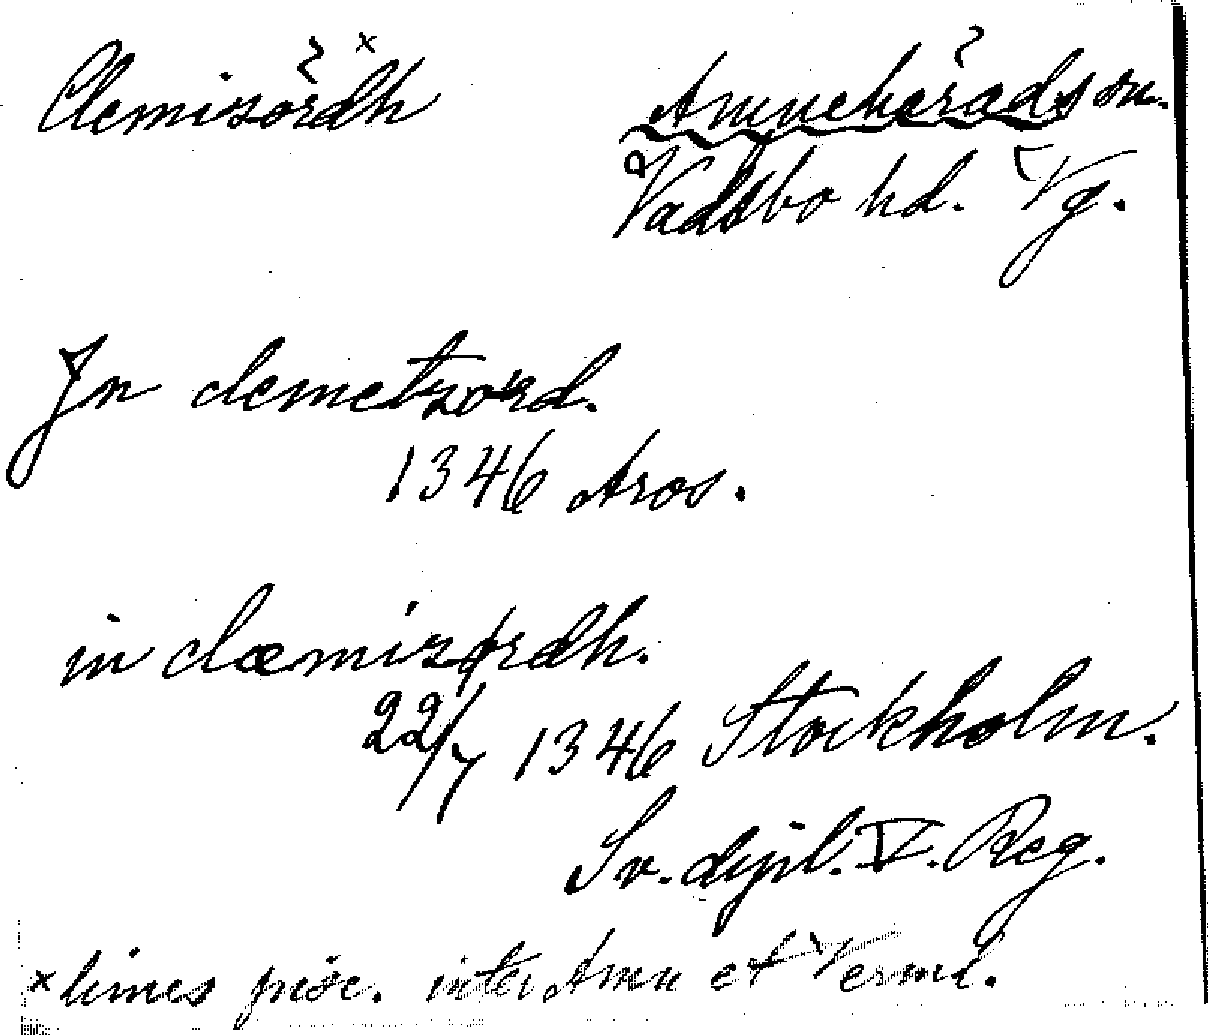 Clemisördh × Amnehärads sn.
Vadsbo hd. Vg.
Jn clemetzord.
1346 Aros.
in clæmizørdh.
22/7 1346 Stockholm.
Sv. dipl. V. Reg.
× limes pisc. inter Amn et Verml.